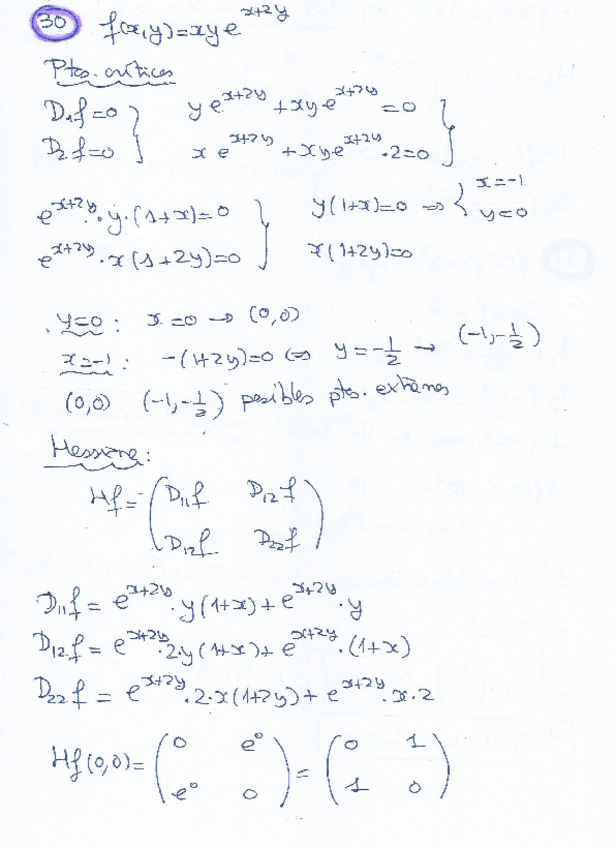 30 f(x,y)=xye^{x+2y}
Ptos. críticos
D₁f=0 } ye^{x+2y}+xye^{x+2y}=0 }
D₂f=0 } xe^{x+2y}+xye^{x+2y}·2=0 }
e^{x+2y}·y·(1+x)=0 } y(1+x)=0 ⇒ { x=-1
y=0
e^{x+2y}·x(1+2y)=0 } x(1+2y)=0
y=0: x=0 → (0,0)
x=-1: -(1+2y)=0 ⇔ y=-1/2 → (-1,-1/2)
(0,0) (-1,-1/2) posibles ptos. extremos
Hessiana:
Hf=(D₁₁f D₁₂f
D₁₂f D₂₂f)
D₁₁f = e^{x+2y}·y(1+x)+e^{x+2y}·y
D₁₂f = e^{x+2y}·2·y(1+x)+e^{x+2y}·(1+x)
D₂₂f = e^{x+2y}·2·x(1+2y)+e^{x+2y}·x·2
Hf(0,0)=(0 e⁰
e⁰ 0) = (0 1
1 0)